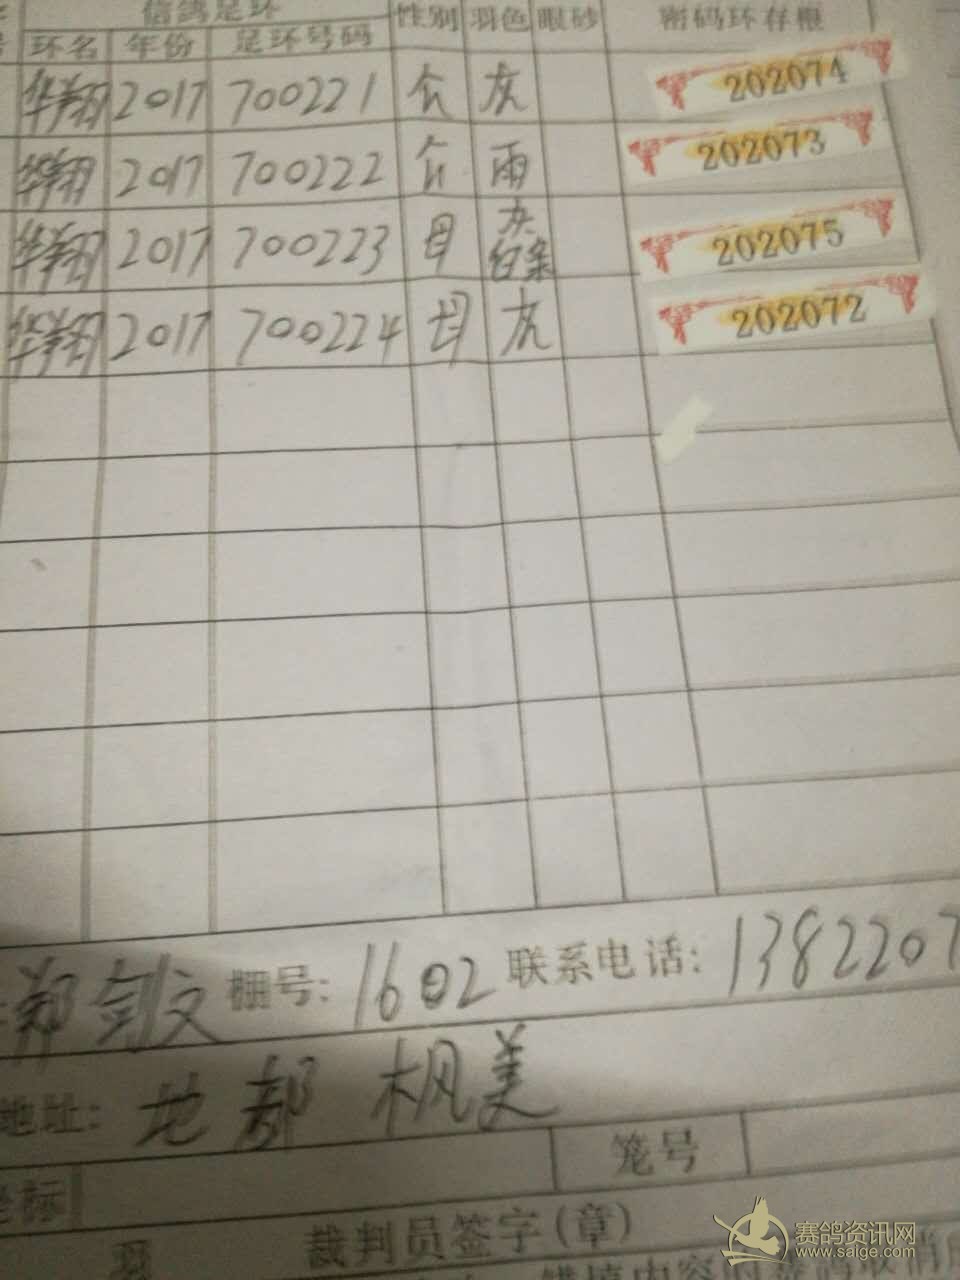 信鸽足环 性别 羽色 眼砂 密码环存根
环名 年份 足环号码
华翔 2017 700221 公 灰 202074
华翔 2017 700222 公 雨 202073
华翔 2017 700223 母 灰白条 202075
华翔 2017 700224 母 灰 202072
郑剑文 棚号: 1602 联系电话: 1382207
地址: 地都 枫美
坐标 笼号
裁判员签字(章)
赛鸽资讯网
www.saige.com